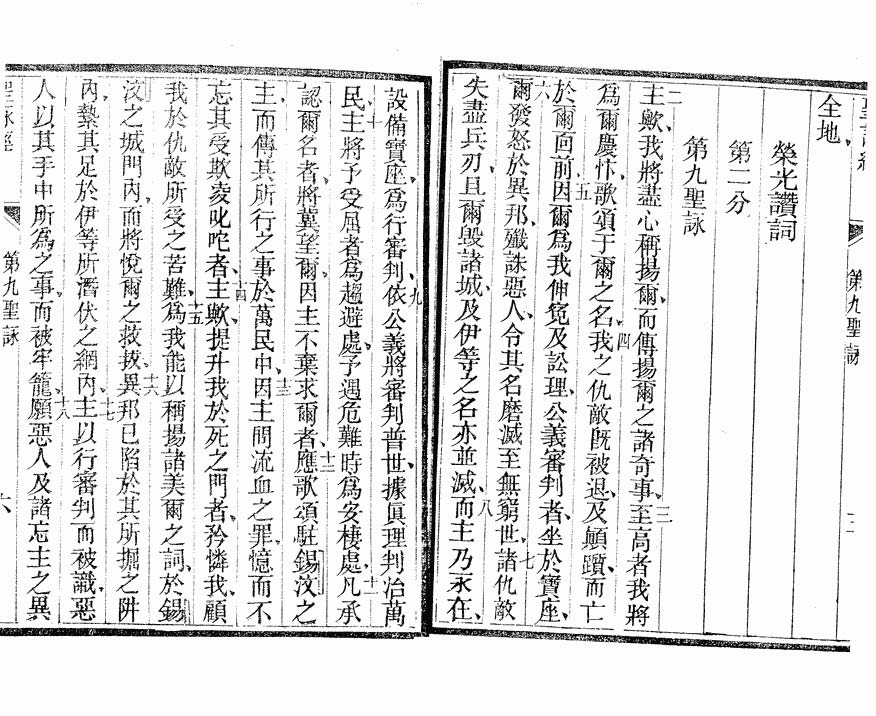 全地、
榮光讚詞
第二分
第九聖詠
二主歟、我將盡心稱揚爾、而傳揚爾之諸奇事、三至高者我將
爲爾慶忭、歌頌于爾之名、四我之仇敵旣被退、及顛躓、而亡
於爾面前、五因爾爲我伸寃、及訟理、公義審判者、坐於寶座、
六爾發怒於異邦、殲誅惡人、令其名磨滅至無窮世、七諸仇敵
失盡兵刃、且爾毀諸城、及伊等之名亦並滅、八而主乃永在、
設備寶座、爲行審判、九依公義將審判普世、據眞理判治萬
民、十主將予受屈者爲趨避處、予遇危難時爲安棲處、十一凡承
認爾名者、將冀望爾、因主不棄求爾者、十二應歌頌駐錫汶之
主、而傳其所行之事於萬民中、十三因主問流血之罪、憶而不
忘其受欺凌叱咤者、十四主歟、提升我於死之門者、矜憐我、顧
我於仇敵所受之苦難、十五爲我能以稱揚諸美爾之詞、於錫
汶之城門內、而將悅爾之救拔、十六異邦已陷於其所掘之阱
內、縶其足於伊等所潛伏之網內、十七主以行審判而被識、惡
人以其手中所爲之事、而被牢籠、十八願惡人及諸忘主之異
第九聖詠
第九聖詠
六